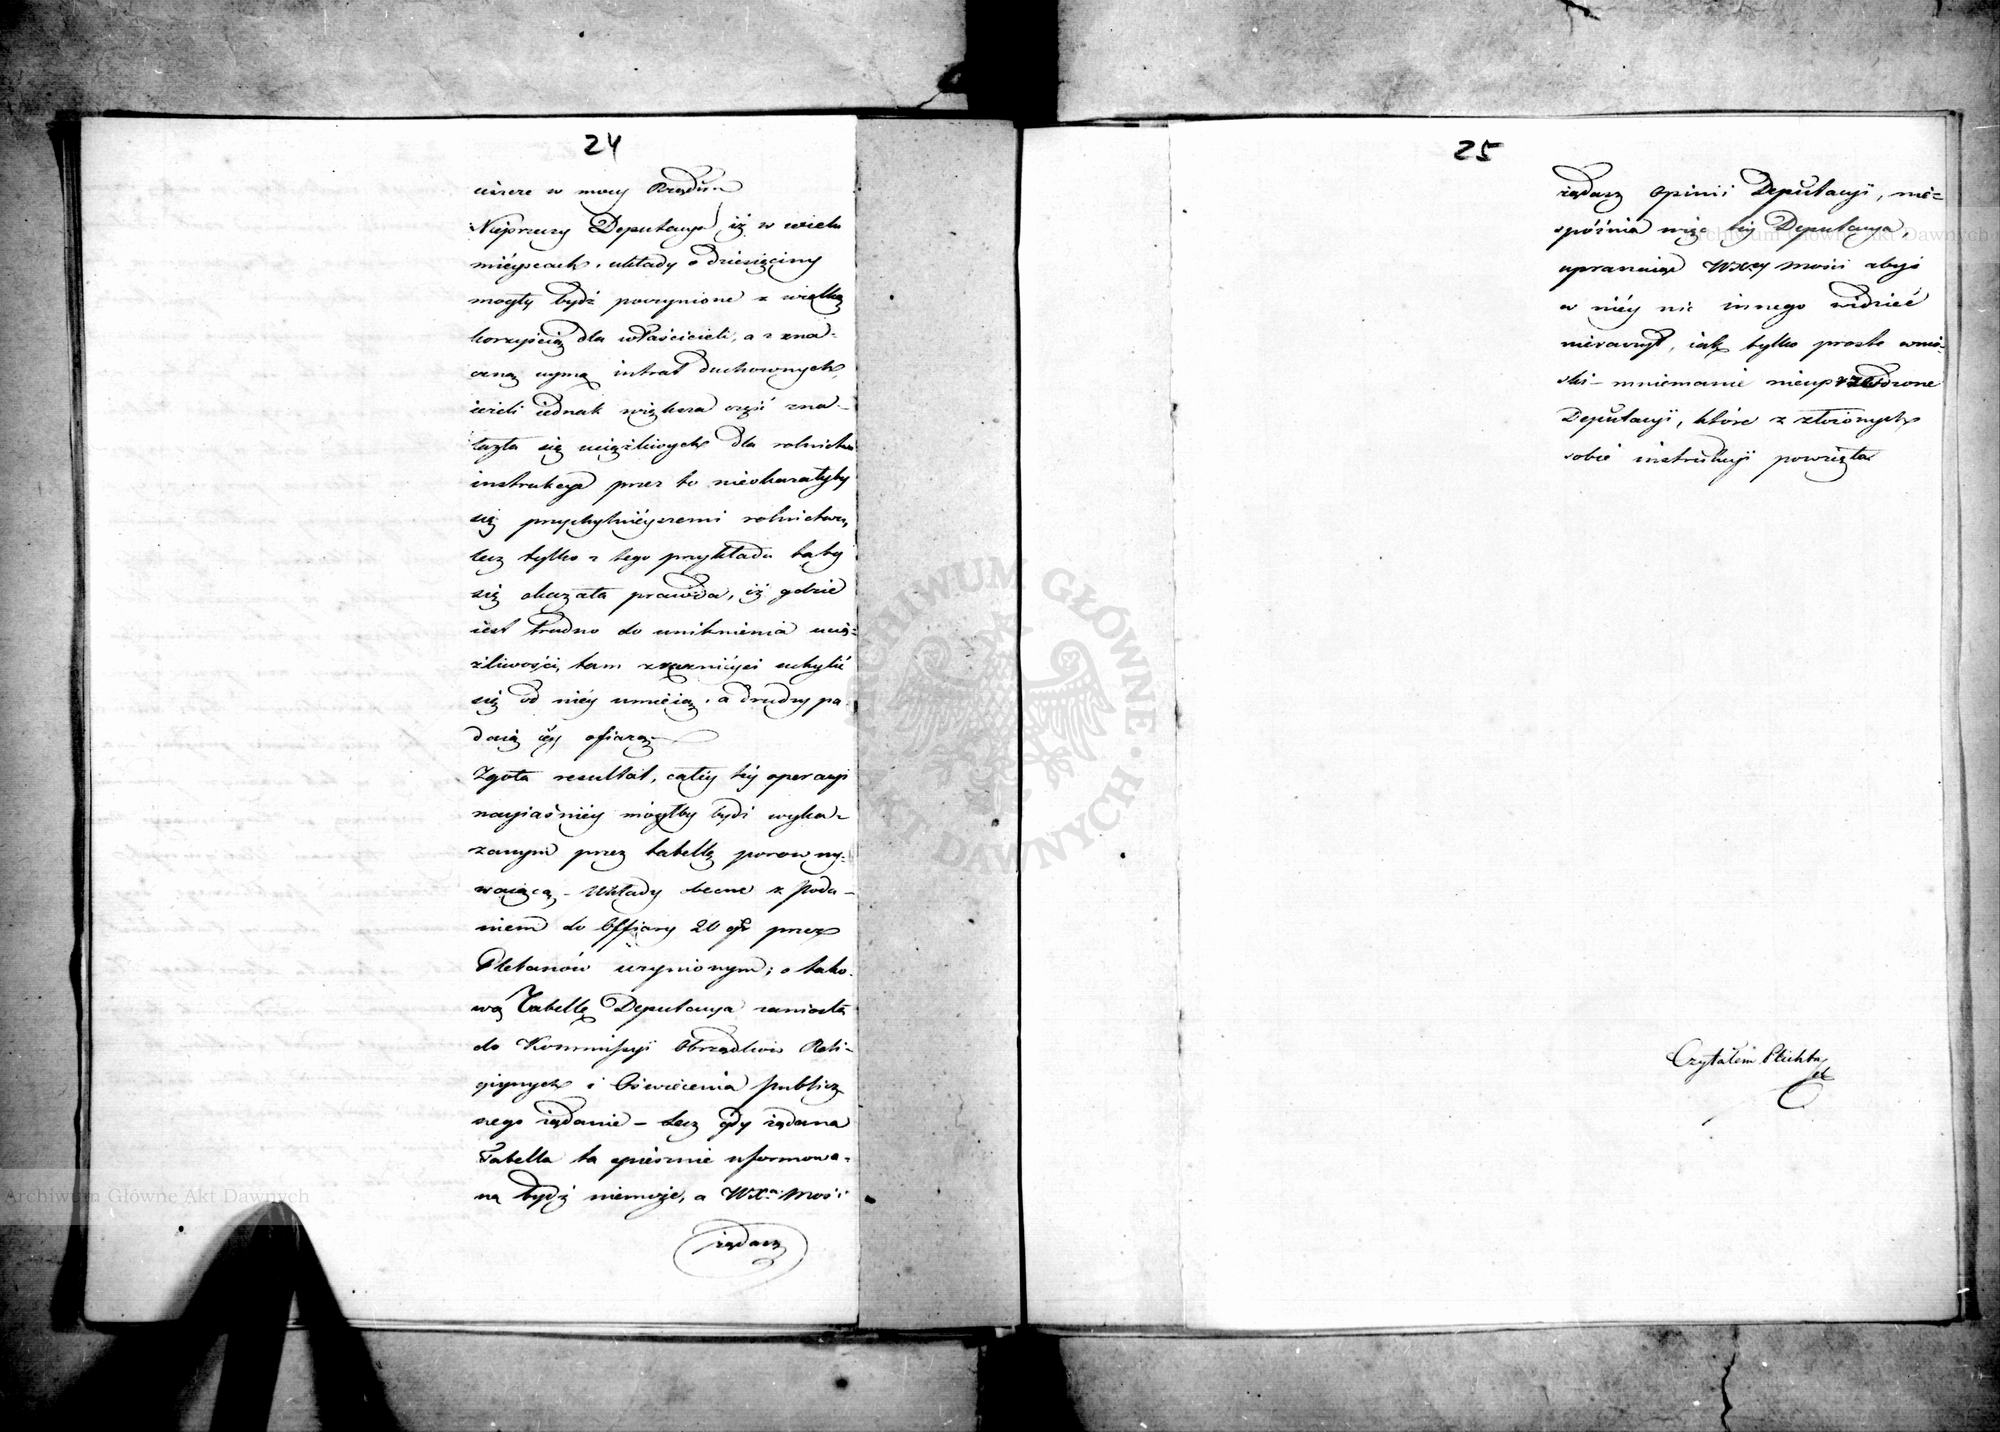 24
w mocy Rządu
Nieprzeczy Deputacya, iż w wielu
mieyscach, układy o dziesięciny
mogły bydź poczynione z wielką
korzyścią dla właścicieli, a z zna-
czną uymą intrat duchownych,
ieżeli iednak większa część zna-
lazła się uciążliwych dla rolnictwa
instrukcya przez to nieokazałyby
się przychylnieyszemi rolnictwu,
lecz tylko z tego przykładu taby
się okazała prawda, iż gdzie
iest trudno do uniknienia ucią-
żliwości, tam zręcznieysi uchylić
się od niéy umieią, a drudzy pa-
daią iey ofiarą
Zgoła resultat, całéy téy operacyi
nayiaśniéy mógłby bydź wyka-
zanym przez tabellę porówny-
waiącą – Układy obecne z poda-
niem do Offiary 20 gr przez
Plebanów uczynionym; o tako-
wą Tabellę Deputacya zaniosła
do Kommissyi Obrządków Reli-
giynych i Oświecenia publicz
nego żądanie – lecz gdy żądana
Tabella ta spiesznie uformowa-
ną bydź niemoże, a WXa. Mość
żądasz
25
żądasz Opinii Deputacyi, nie-
spóźnia więc téy Deputacya,
upraszaiąc WXcey Mości abyś
w niéy nic innego widzieć
nieraczył, iak tylko proste wnio-
ski – mniemanie nieuprzedzone
Deputacyi, które z złożonych
sobie instrukcyi powzięła
Czytałem Plichta
ARCHIWUM GŁÓWNE AKT DAWNYCH
Archiwum Główne Akt Dawnych
Archiwum Główne Akt Dawnych